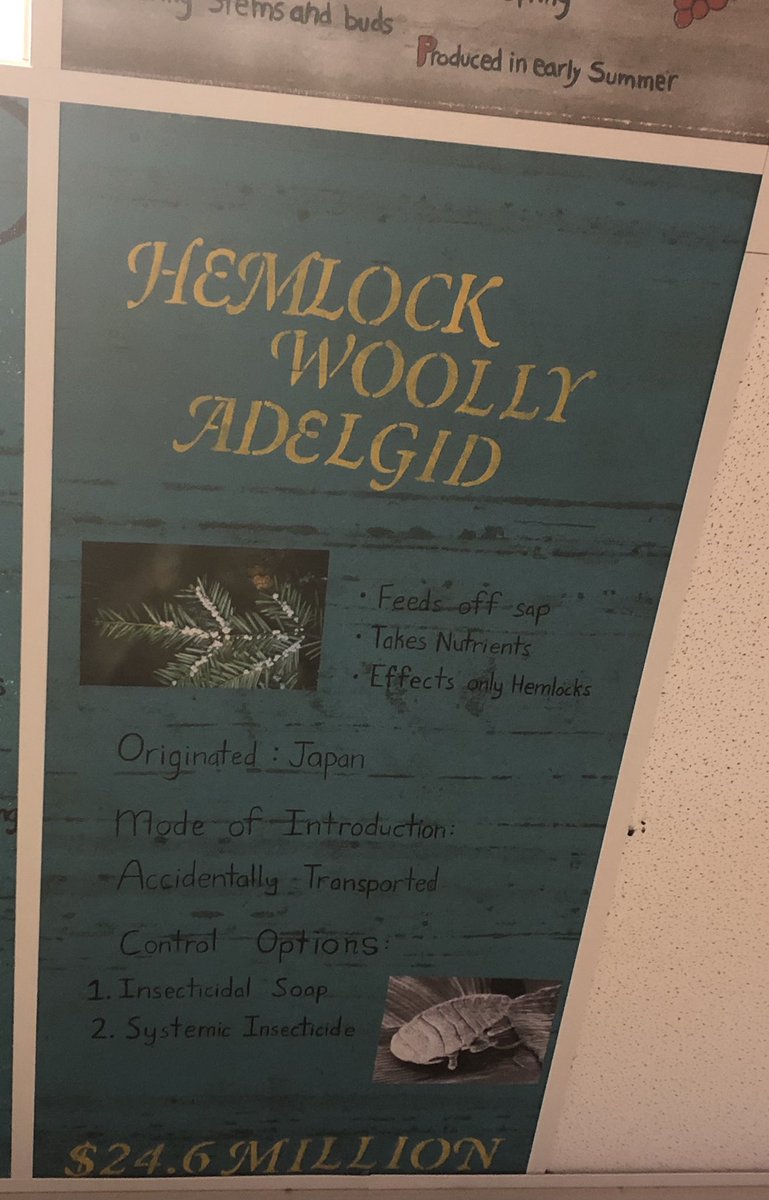 Stems and buds
Produced in early Summer
HEMLOCK
WOOLLY
ADELGID
• Feeds off sap
• Takes Nutrients
• Effects only Hemlocks
Originated : Japan
Mode of Introduction:
Accidentally Transported
Control Options:
1. Insecticidal Soap
2. Systemic Insecticide
$24.6 MILLION